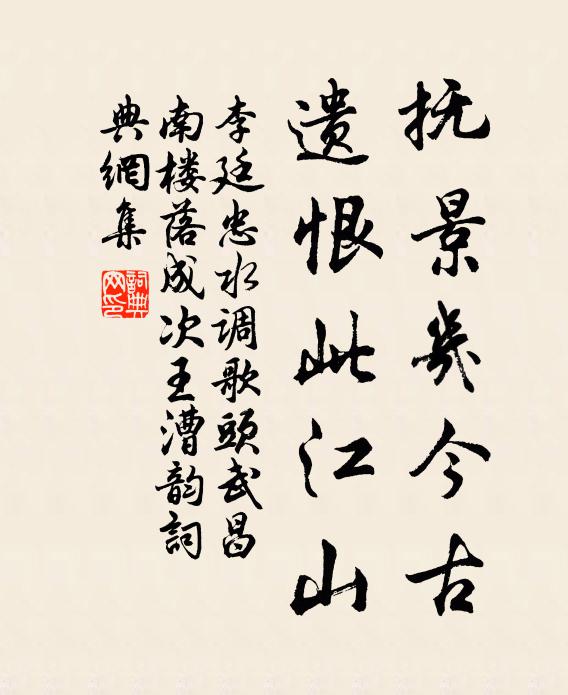 抚景幾今古
遗恨此江山
李廷忠水调歌頭武昌
南楼落成次王漕韵詞
典網集
詞典網印